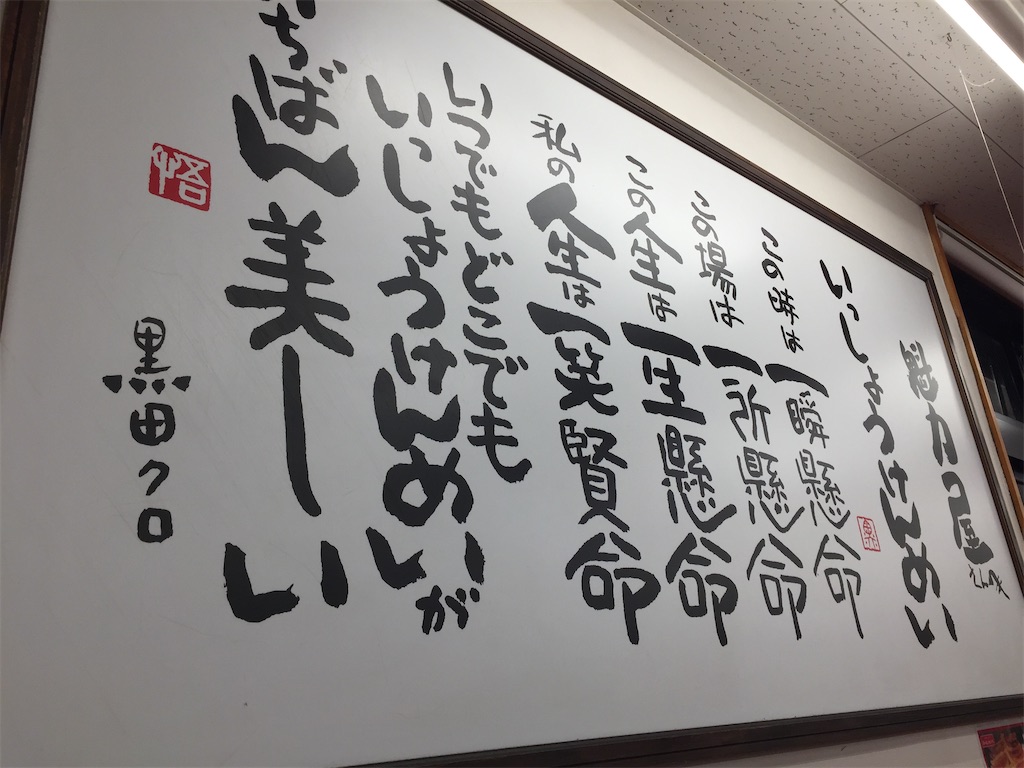 魁力屋
いっしょうけんめい
この は一瞬懸命
この場は一所懸命
この人生は一生懸命
私の人生は一笑賢命
いつでもどこでも
いっしょうけんめいが
ちばん美しい
黒田クロ
悟